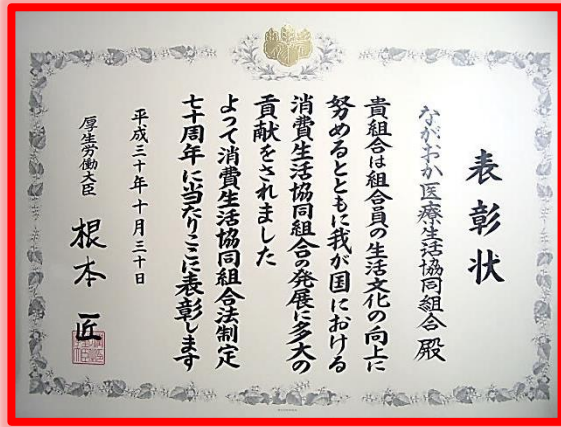 表彰状
ながおか医療生活協同組合 殿
貴組合は組合員の生活文化の向上に
努めるとともに我が国における
消費生活協同組合の発展に多大の
貢献をされました
よって消費生活協同組合法制定
七十周年に当たりここに表彰します
平成三十年十月三十日
厚生労働大臣 根本 匠